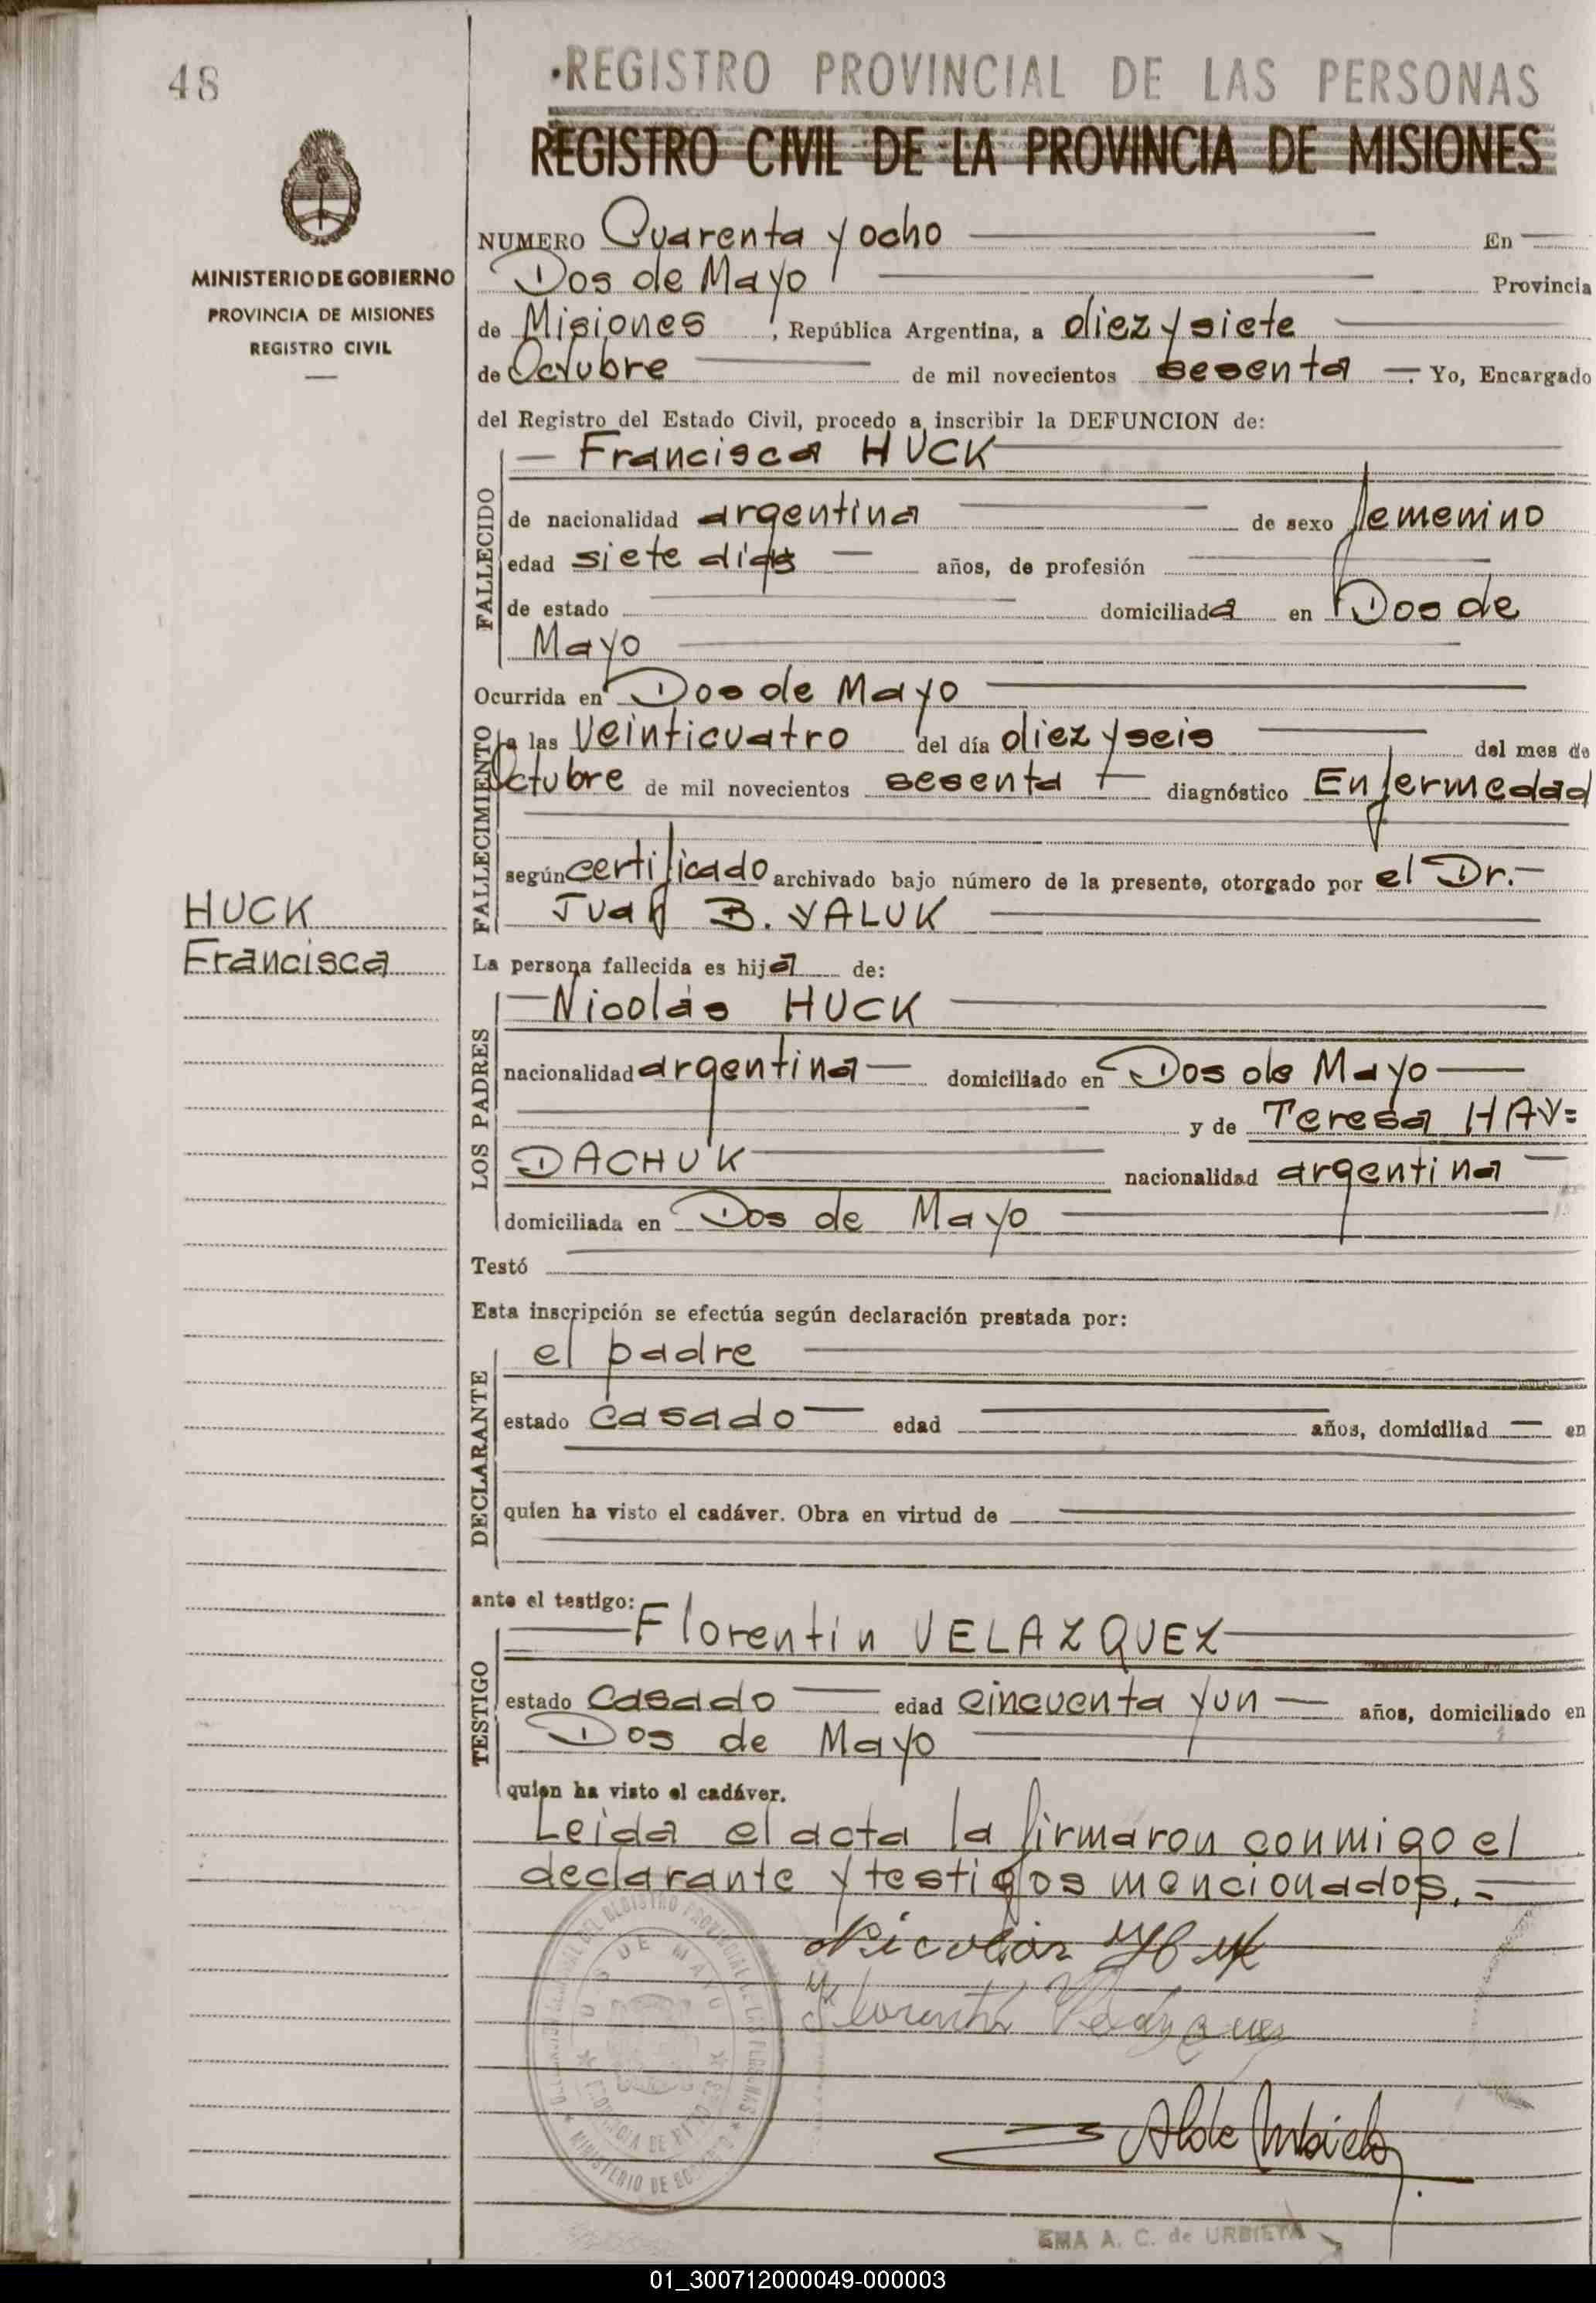 48
·REGISTRO PROVINCIAL DE LAS PERSONAS
REGISTRO CIVIL DE LA PROVINCIA DE MISIONES
MINISTERIO DE GOBIERNO
PROVINCIA DE MISIONES
REGISTRO CIVIL
NUMERO Quarenta y ocho En
Dos de Mayo Provincia
de Misiones, República Argentina, a diez y siete
de Octubre de mil novecientos sesenta. Yo, Encargado
del Registro del Estado Civil, procedo a inscribir la DEFUNCION de:
FALLECIDO
Francisca HUCK
de nacionalidad argentina de sexo femenino
edad siete días años, de profesión
de estado domiciliada en Dos de
Mayo
Ocurrida en Dos de Mayo
FALLECIMIENTO
a las Veinticuatro del día diez y seis del mes de
Octubre de mil novecientos sesenta diagnóstico Enfermedad
según certificado archivado bajo número de la presente, otorgado por el Dr.-
Juan B. YALUK
HUCK
Francisca
La persona fallecida es hija de:
LOS PADRES
Nicolás HUCK
nacionalidad argentina domiciliado en Dos de Mayo
y de Teresa HAV=
DACHUK nacionalidad argentina
domiciliada en Dos de Mayo
Testó
Esta inscripción se efectúa según declaración prestada por:
DECLARANTE
el padre
estado casado edad años, domiciliad en
quien ha visto el cadáver. Obra en virtud de
ante el testigo:
TESTIGO
Florentin VELAZQUEZ
estado casado edad cincuenta y un años, domiciliado en
Dos de Mayo
quien ha visto el cadáver.
Leida el acta la firmaron conmigo el
declarante y testigos mencionados.-
Nicolás Huk
Florentin Velazquez
DOS DE MAYO
EMA A. C. de URBIETA
01_300712000049-000003